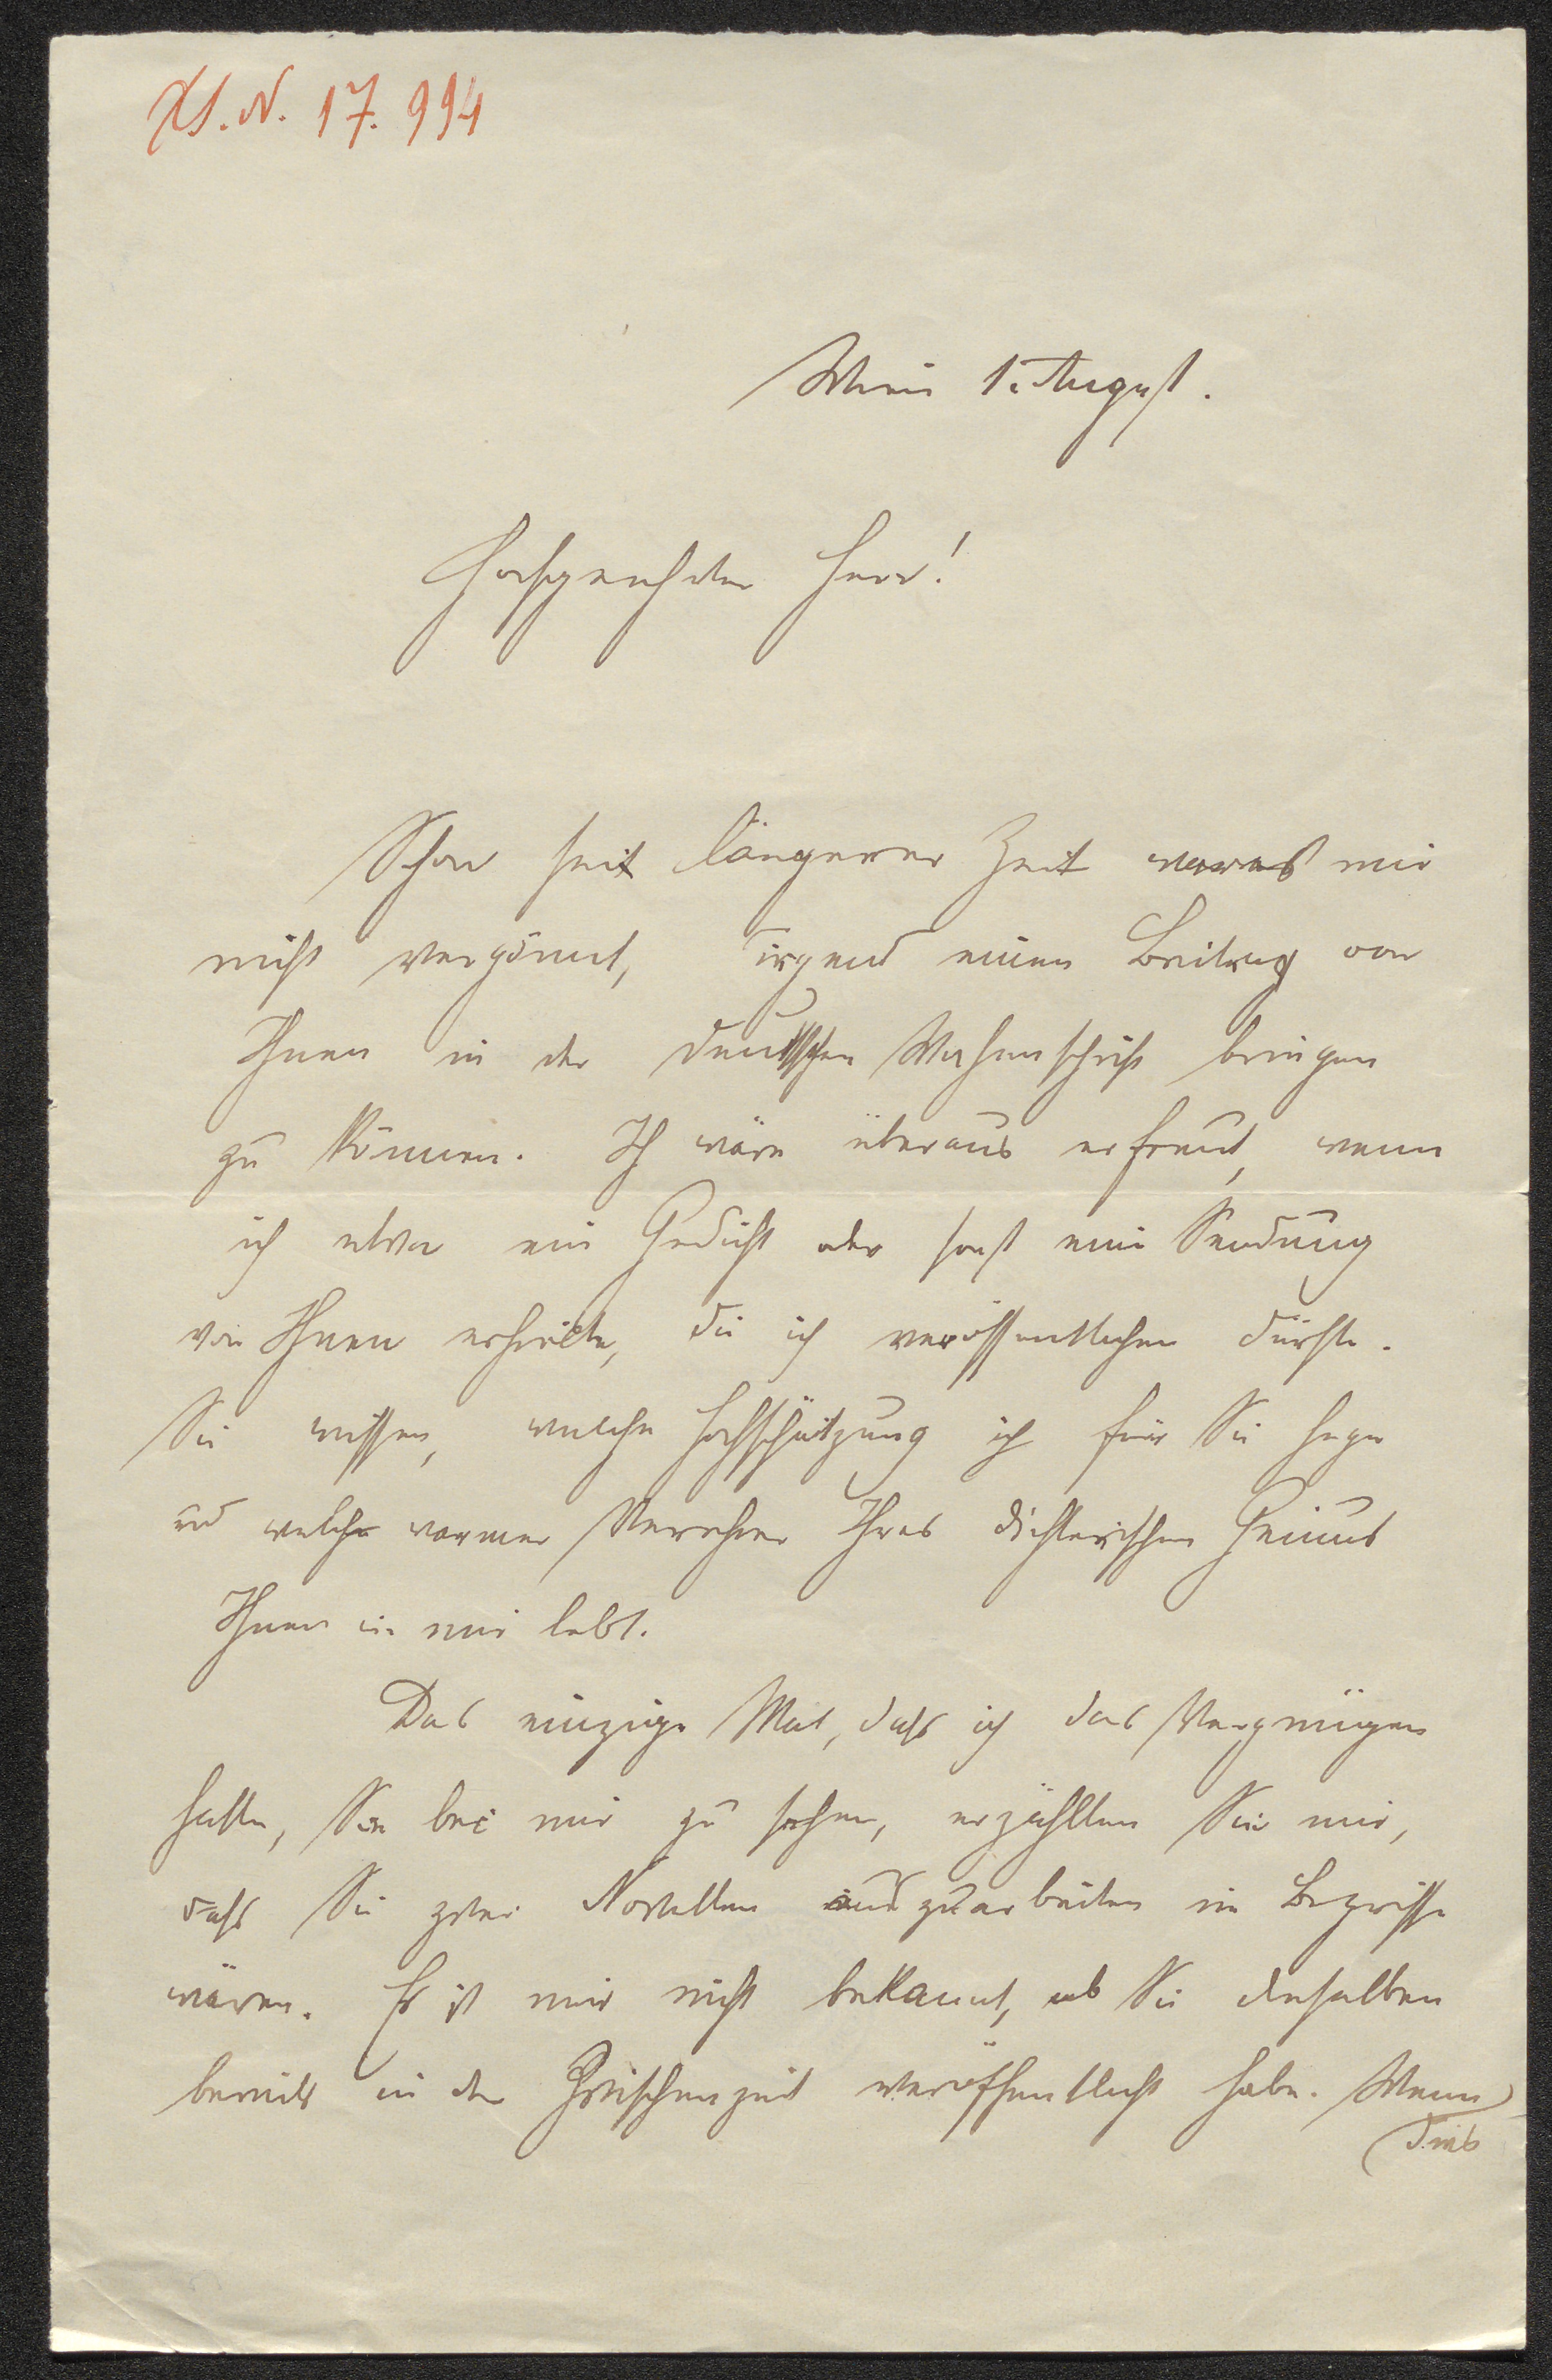 Xs. N. 17.994
Wien 1. August.
Hochgeehrter Herr!
Schon seit längerer Zeit war es mir
nicht vergönnt, irgend einen Beitrag von
Ihnen in der Deutschen Wochenschrift bringen
zu können. Ich wäre überaus erfreut, wenn
ich etwa ein Gedicht oder sonst eine Sendung
von Ihnen erhielte, die ich veröffentlichen dürfte.
Sie wissen, welche Hochschätzung ich für Sie hege
und welch warmer Verehrer Ihres dichterischen Genius
Ihnen in mir lebt.
Das einzige Mal, daß ich das Vergnügen
hatte, Sie bei mir zu sehen, erzählten Sie mir,
daß Sie zwei Novellen auszuarbeiten im Begriffe
wären. Es ist mir nicht bekannt, ob Sie dieselben
bereits in der Zwischenzeit veröffentlicht haben. Wenn
dies